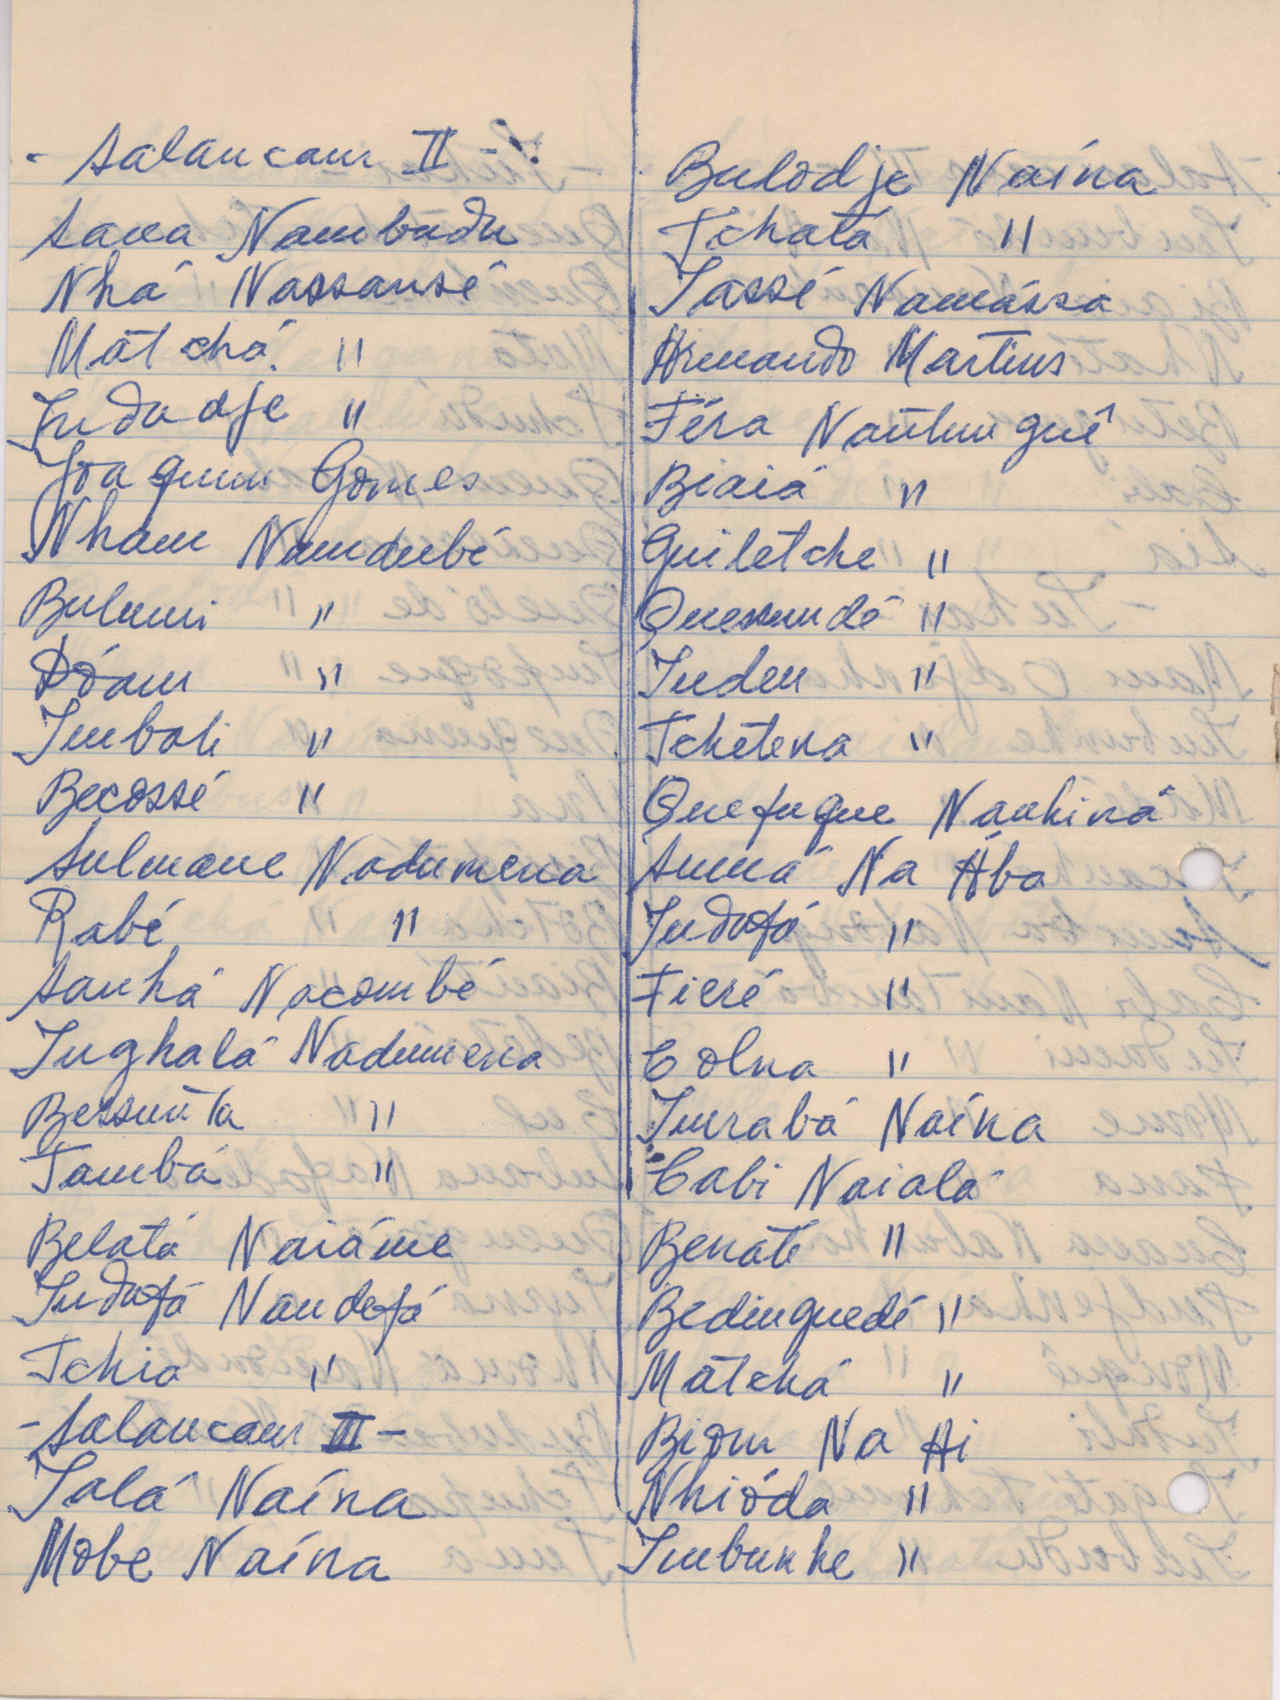 - Salancaur II -
Sana Nambudu
Nhá Nassansé
Matchá "
Indadje "
Joaquim Gomes
Nham Namdubé
Bulumi "
Dóam "
Imbali "
Becossé "
Sulmane Nadumena
Rabé "
Sanhá Nacombé
Inghalá Nadumena
Bessunta "
Tambá "
Belatá Naiáme
Indafá Nandefá
Tchia "
- Salancaur III -
Ialá Naína
Mobe Naína
Bulodje Naína
Tchatá "
Iassé Namássa
Armando Martins
Féra Nantungué
Biaiá "
Guiletche "
Quessundé "
Inden "
Tchetena "
Quefugue Nanhiná
Sumá Na Ába
Indafá "
Fieré "
Colna "
Imrabá Naína
Cabi Naialá
Benate "
Bedinguedé "
Matchá "
Biom Na Hi
Nhióda "
Imbunhe "